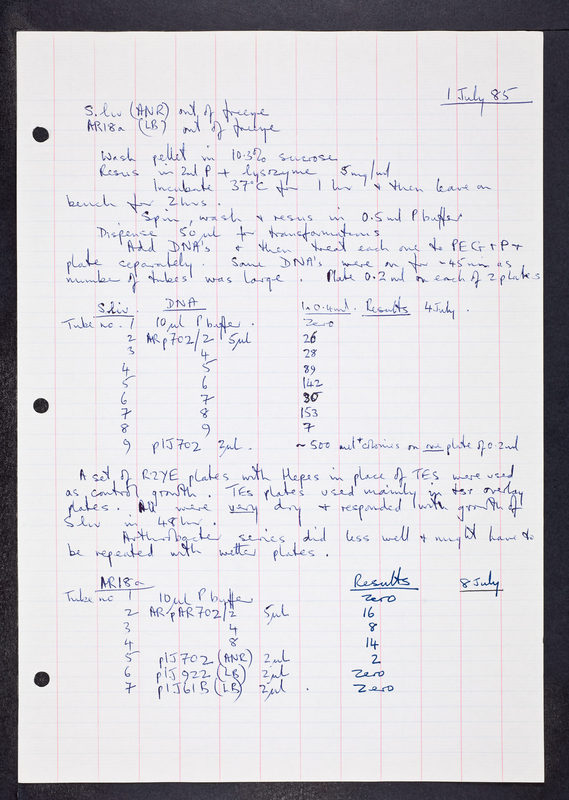 1 July 85
S. liv (ANR) out of freeze
AR18a (LB) out of freeze
Wash pellet in 10.3% sucrose
Resus in 2ml P + lysozyme 5mg/ml
Incubate 37°C for 1 hr & then leave on
bench for 2 hrs.
Spin, wash & resus in 0.5 ml P buffer
Dispense 50 µl for transformations
Add DNA's & then treat each one to PEG + P +
plate separately. Some DNA's were on for ~45 min as
number of tubes was large. Plate 0.2 ml on each of 2 plates
S. liv. DNA In 0.4ml. Results 4 July.
Tube no. 1 10 µl P buffer. Zero
2 ARp702/2 5µl 26
3 4 28
4 5 89
5 6 142
6 7 30
7 8 153
8 9 7
9 pIJ702 2µl. ~ 500 mel+ colonies on one plate of 0.2ml
A set of R2YE plates with Hepes in place of TES were used
as control growth. TES plates used mainly for overlay
plates. All were very dry & responded with growth of
S liv in 48 hr.
Arthrobacter series did less well & might have to
be repeated with wetter plates.
AR18a Results 8 July
Tube no 1 10 µl P buffer Zero
2 AR pAR702/2 5µl 16
3 4 8
4 8 14
5 pIJ702 (ANR) 2µl 2
6 pIJ922 (LB) 2µl Zero
7 pIJ61B (LB) 2µl. Zero